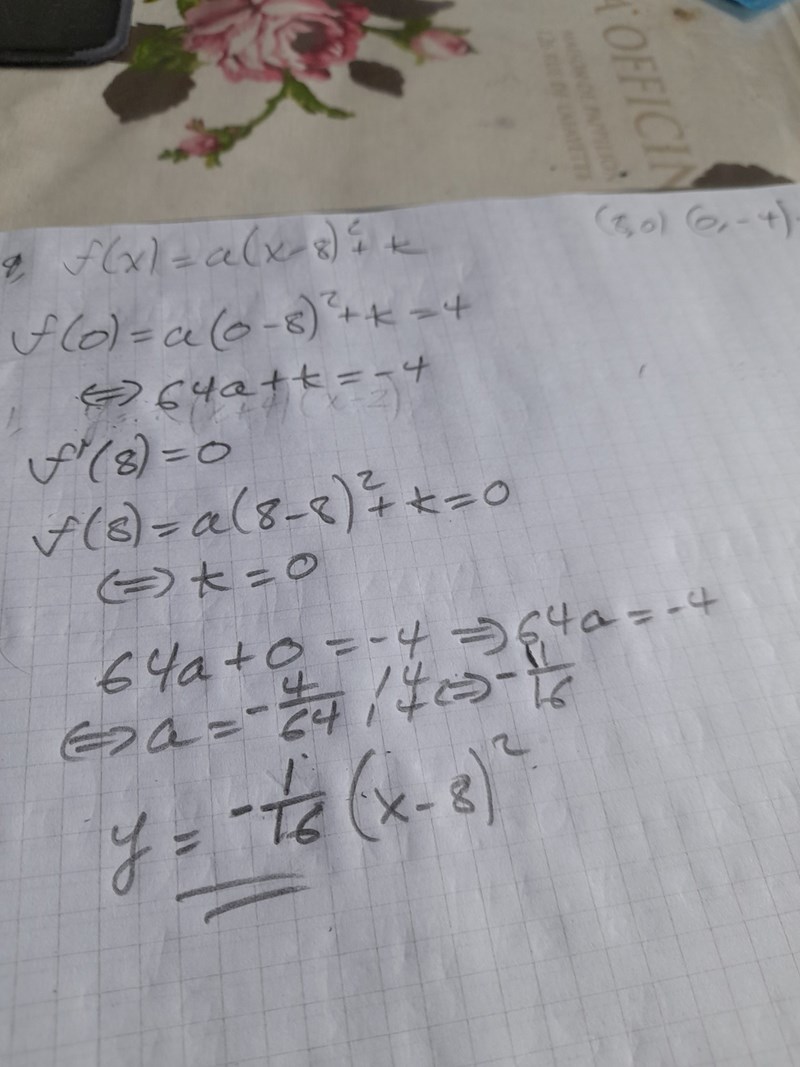 A' OFFICIN
(8,0) (0,-4)
f(x) = a(x-8)² + k
f(0) = a(0-8)² + k = 4
⇔ 64a + k = -4
f'(8) = 0
f(8) = a(8-8)² + k = 0
⇔ k = 0
64a + 0 = -4 ⇒ 64a = -4
⇔ a = -4/64 ⇔ -1/16
y = -1/16 (x-8)²